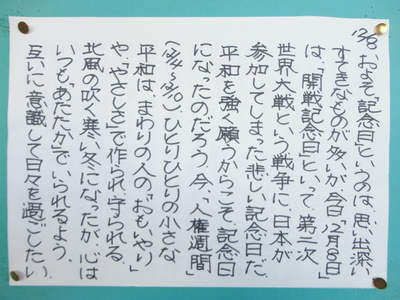 12/8、およそ「記念日」というのは、思い出深い
すてきなものが多いが、今日「12月8日」
は、「開戦記念日」といって、第二次
世界大戦という戦争に、日本が
参加してしまった悲しい記念日だ。
平和を強く願うからこそ、記念日
になったのだろう。今、「人権週間」
(12/4〜12/10)ひとりひとりの小さな
平和は、まわりの人の「おもいやり」
や、「やさしさ」で作られ、守られる。
北風の吹く寒い冬になったが、心は
いつも「あたたか」でいられるよう、
互いに意識して日々を過ごしたい。